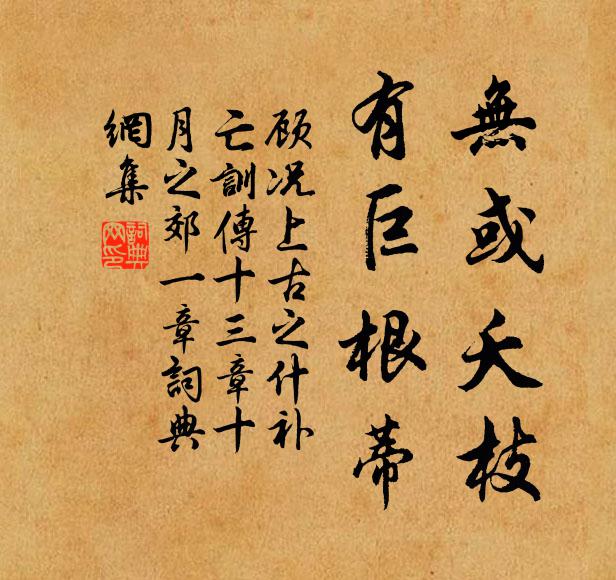 無或夭枝
有巨根蒂
顾况上古之什补
亡訓傳十三章十
月之郊一章詞典
網集
詞典網印